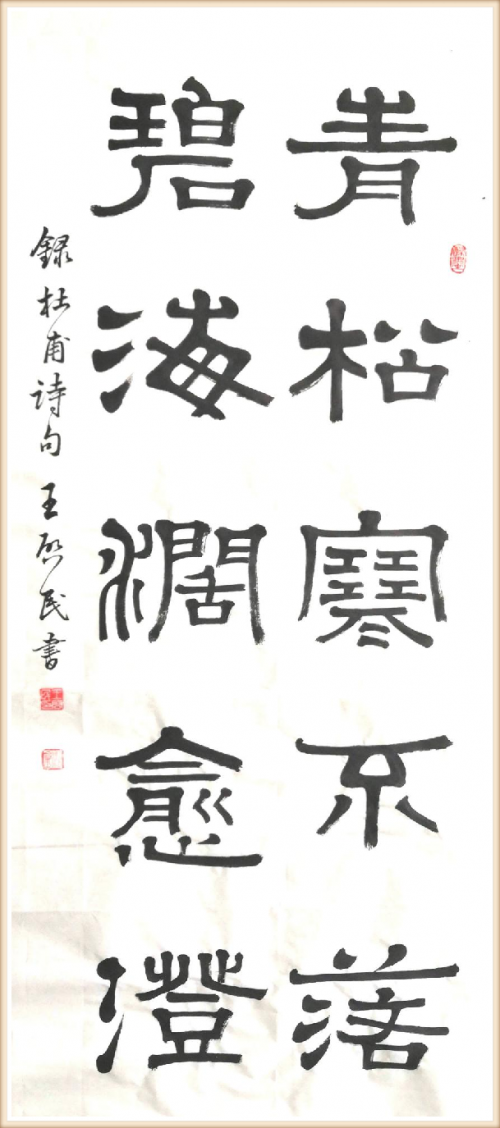 青松寒不落
碧海濶愈澄
録杜甫诗句王啟民書